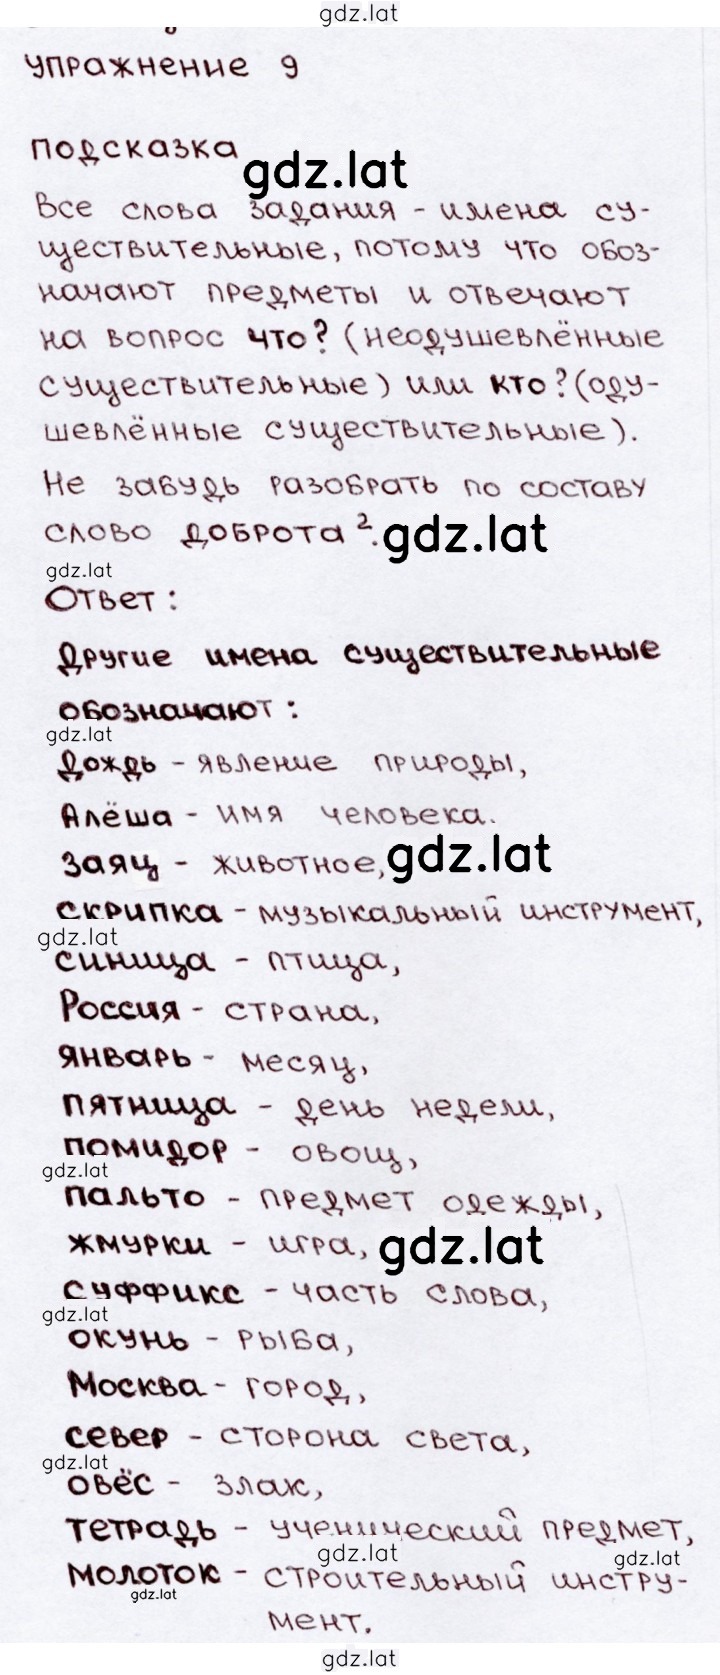 gdz.lat
упражнение 9
подсказка
gdz.lat
Все слова задания - имена су-
ществительные, потому что обоз-
начают предметы и отвечают
на вопрос что? (неодушевлённые
существительные) или кто? (оду-
шевлённые существительные).
Не забудь разобрать по составу
слово доброта².
gdz.lat
gdz.lat
Ответ:
Другие имена существительные
обозначают:
gdz.lat
Дождь - явление природы,
Алёша - имя человека.
заяц - животное,
gdz.lat
скрипка - музыкальный инструмент,
gdz.lat
синица - птица,
Россия - страна,
январь - месяц,
пятница - день недели,
помидор - овощ,
gdz.lat
пальто - предмет одежды,
жмурки - игра,
gdz.lat
суффикс - часть слова,
gdz.lat
окунь - рыба,
Москва - город,
север - сторона света,
gdz.lat
овёс - злак,
тетрадь - ученический предмет,
gdz.lat
gdz.lat
молоток - строительный инстру-
gdz.lat
мент.
gdz.lat